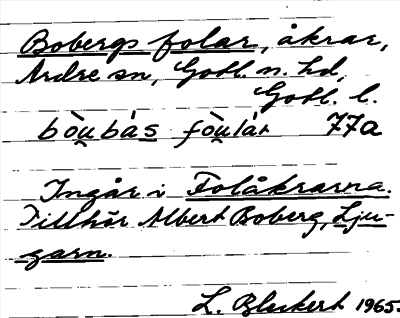 Bobergs folar, åkrar,
Ardre sn, Gotl. n. hd,
Gotl. l.
bòu̯bás fòu̯lár 77a
Ingår i Folåkrarna.
Tillhör Albert Boberg, Lju-
garn.
L. Bleckert 1965.